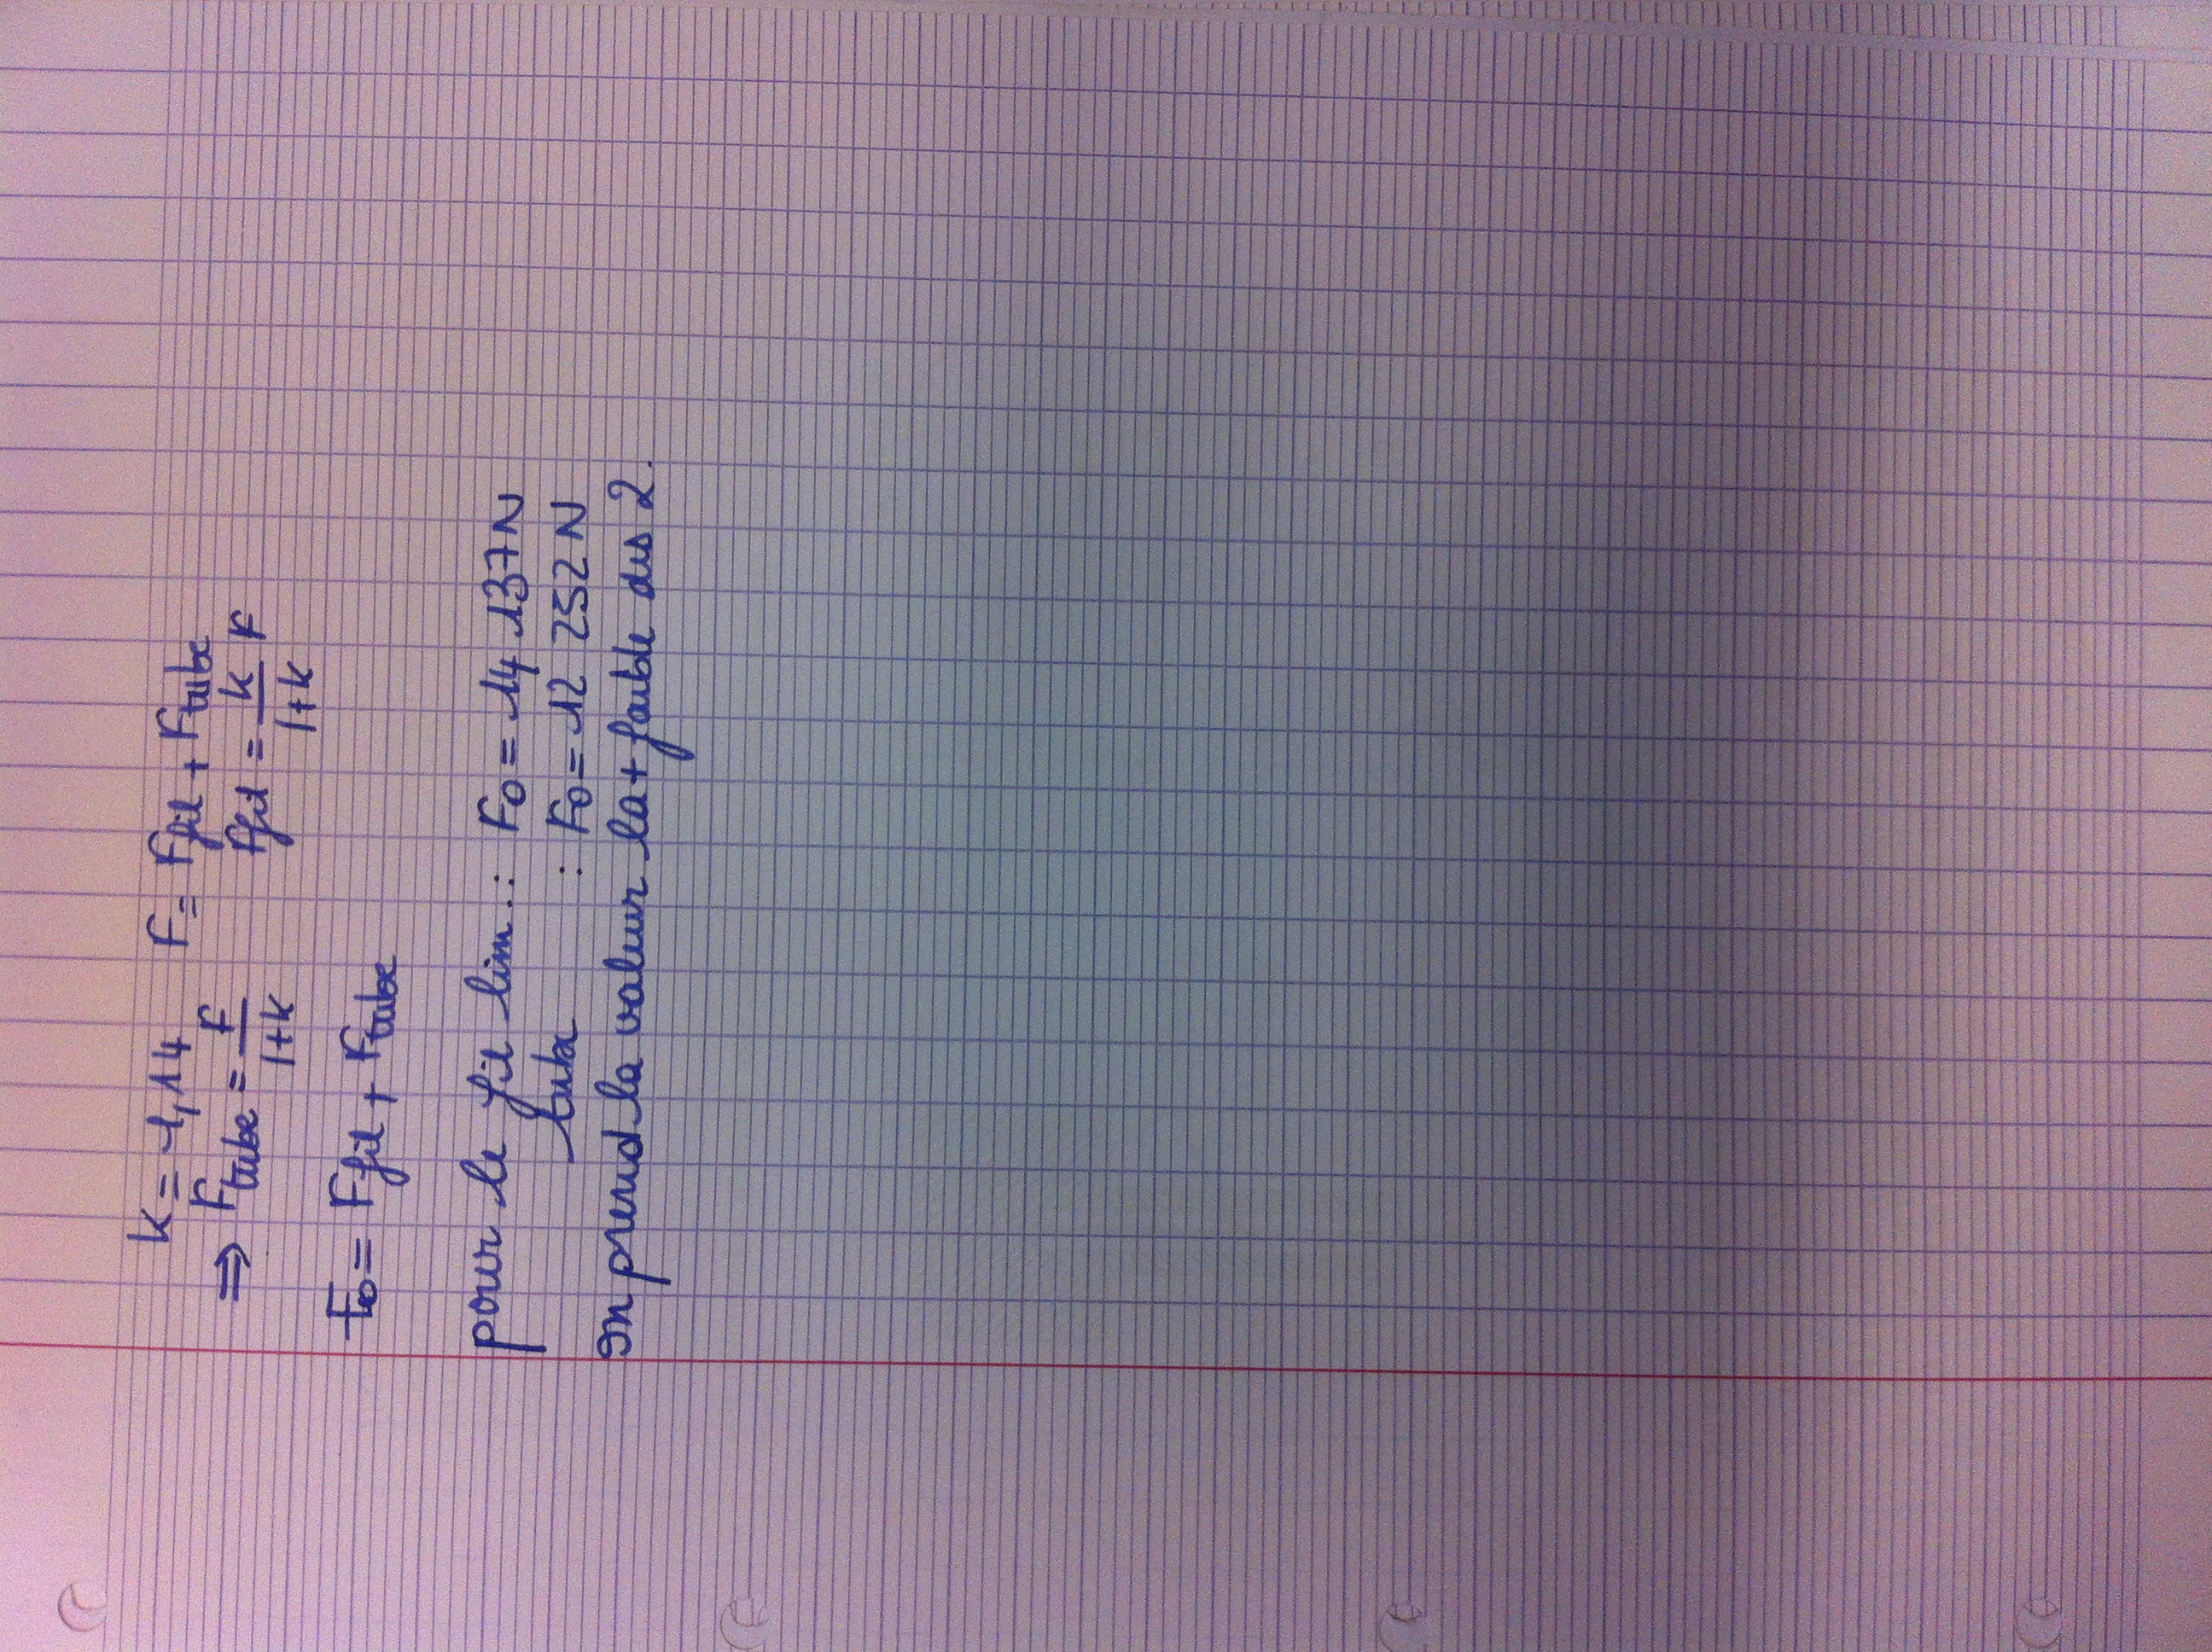 k = 1,14 F = Ffil + Ftube
⇒ Ftube = F/(1+k) Ffil = k/(1+k) F
F0 = Ffil + Ftube
pour le fil lim.: F0 = 14 137 N
tube : F0 = 12 252 N
on prend la valeur la + faible des 2.